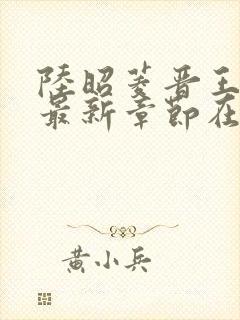 陸昭菱晋王
最新章節在
黄小兵